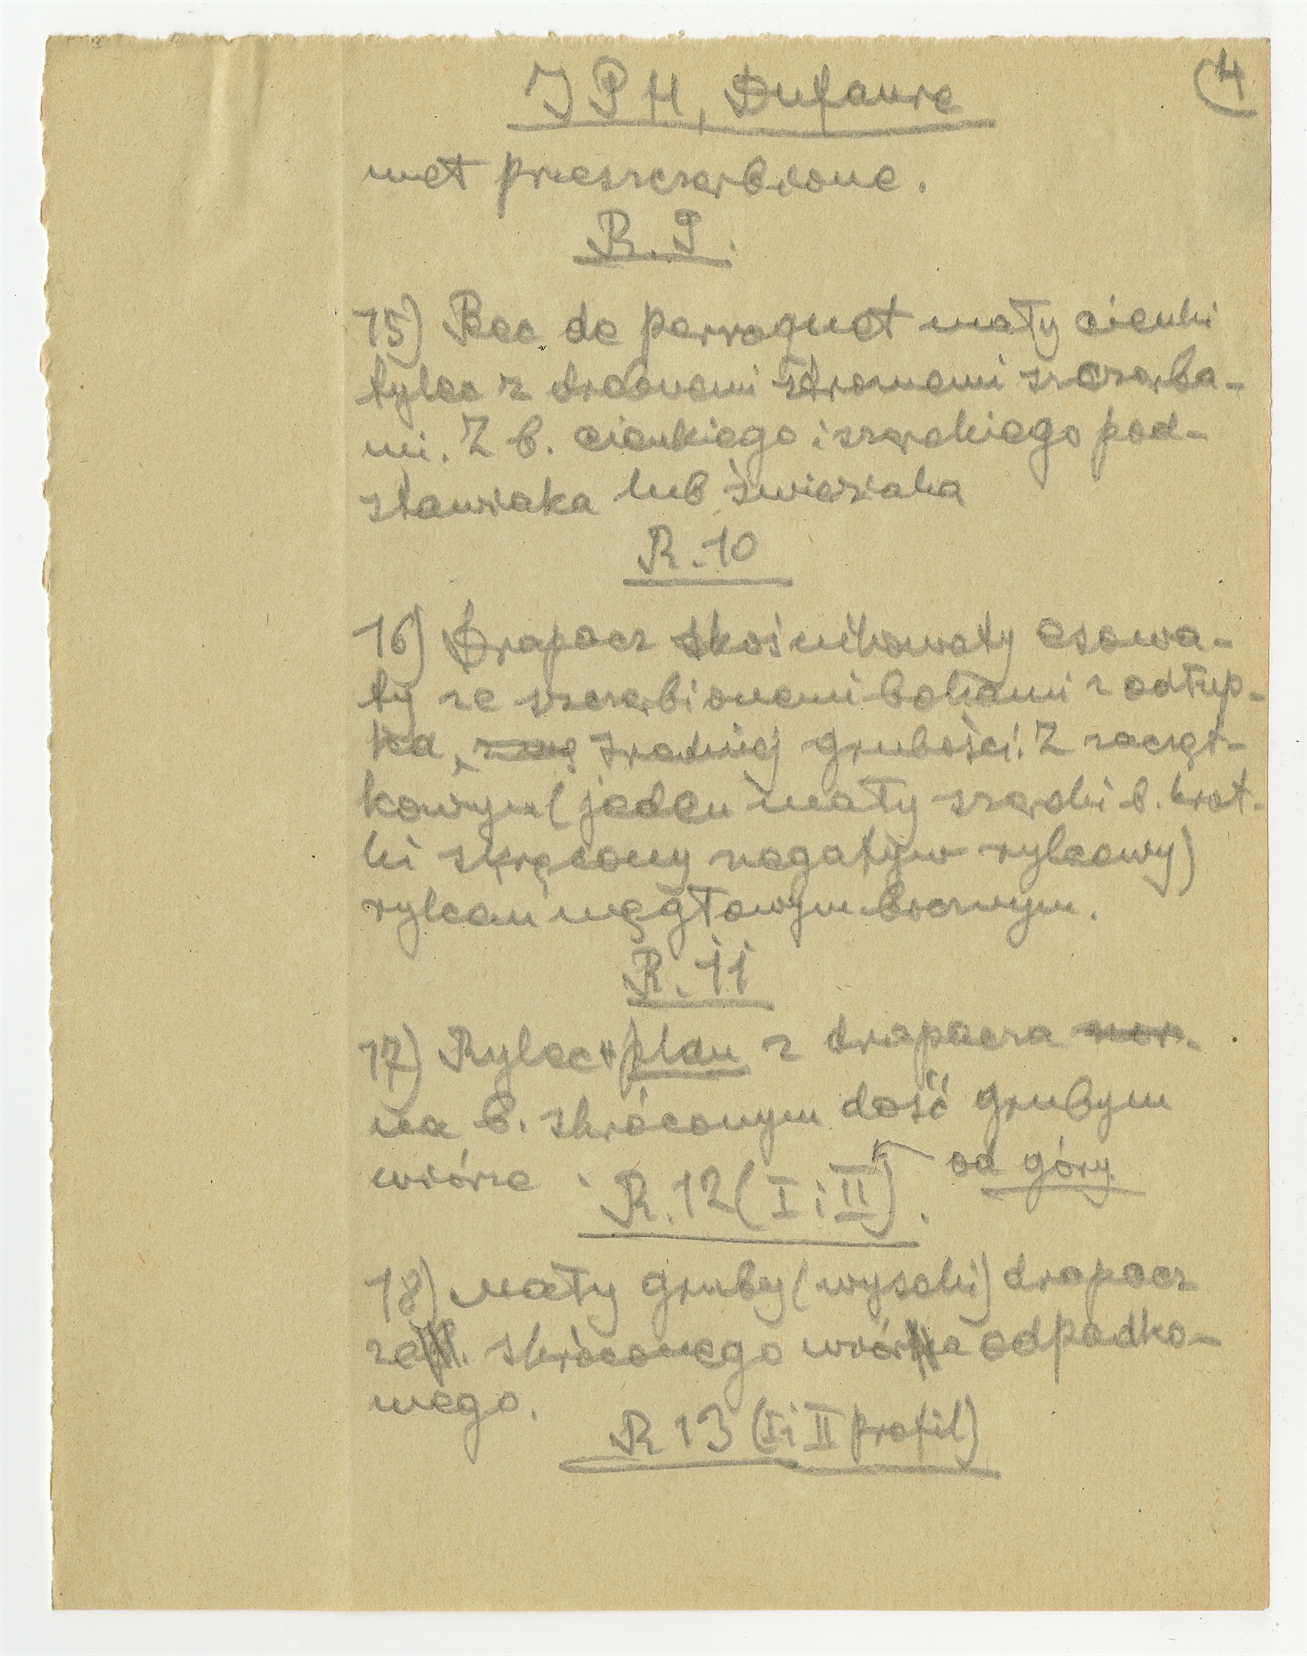 4
IPH, Dufaure
wet przeszczerbione.
R. 9.
15) Bec de perroquet mały cienki
rylec z drobnemi stromemi szczerba-
mi. Z b. cienkiego i szerokiego pod-
stawiaka lub świeziaka
R. 10
16) Drapacz skośnikowaty osowa-
ty ze szczerbionemi bokami z odłup-
ka, średniej grubości. Z zacząt-
kowym (jeden mały szeroki b. krót-
ki skręcony negatyw rylcowy)
rylcem węgłowym bocznym.
R. 11
17) Rylec plan z drapacza
na b. skróconym dość grubym
wiórze. od góry
R. 12 (I i II).
18) Mały gruby (wysoki) drapacz
ze skróconego wióra odpadko-
wego.
R 13 (I i II profil)